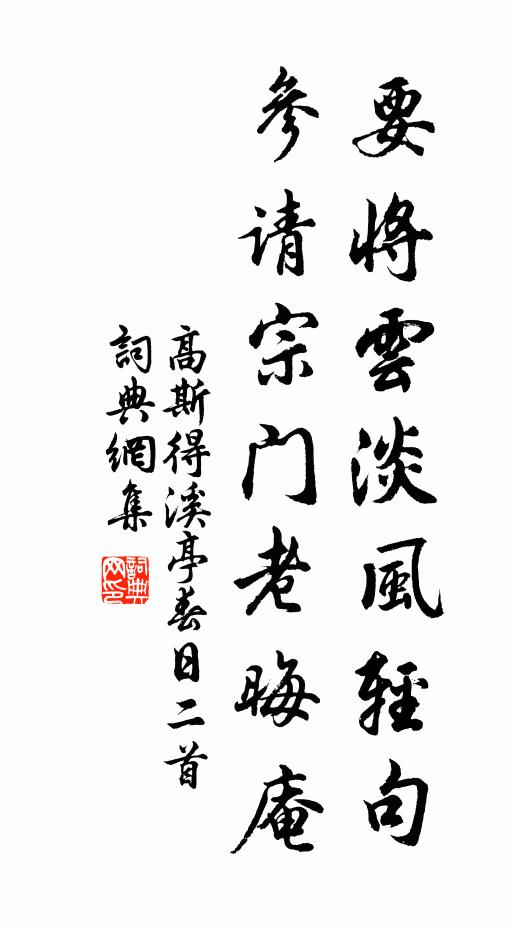 要將雲淡風輕句
參请宗门老晦庵
高斯得溪亭春日二首
詞典網集
詞典網印